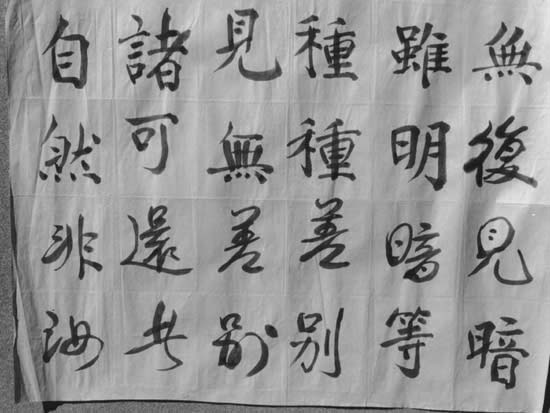 無復見暗
雖明暗等
種種差別
見無差別
諸可還者
自然非汝